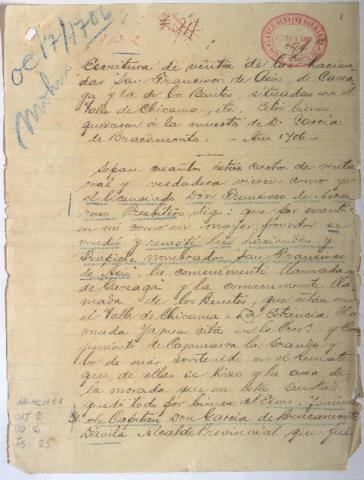 OC 17/1706
Escritura de venta de las hacien
das San Francisco de Asis de Carea
ga y la de los Benites situadas en el
Valle de Chicama, etc. Estos bienes
quedaron á la muerte de D. García
de Bracamonte. – Año 1706 –
Sepan cuantos esta carta de venta
real y verdadera vieren como yo
el licenciado Don Francisco de
Presbítero digo: que por cuanto
en mi como en mejor postor se
vendió y remató las haciendas y
Trapiche nombrados San Francisco
de Asis la comunmente llamada
de Careaga y la comunmente lla
mada de los Benites, que están en
el Valle de Chicama – La Estancia lla
mada Yaguen cita en la Prov.ª y Co
rregimiento de Cajamarca la Grande y
lo de más contenido en el Remate
que de ellas se hizo y la casa de
la morada que en esta Ciudad
quedó todo por bienes del
Capitán Don García de Bracamonte
Dávila Alcalde Provincial que fué